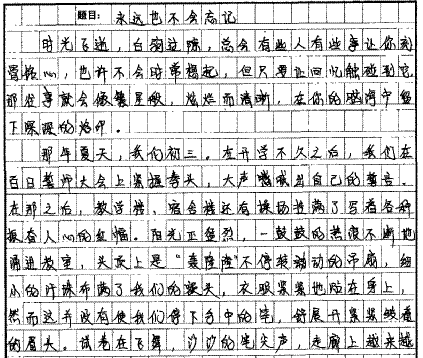 题目：永远也不会忘记
时光飞逝，白驹过隙，总会有些人有些事让你刻
骨铭心，也许不会时常想起，但只要让回忆触碰到它
那些事就会像繁星般，灿烂而清晰，在你的脑海中留
下深深的烙印。
那年夏天，我们初三。在开学不久之后，我们在
百日誓师大会上紧握拳头，大声喊出自己的誓言。
在那之后，教学楼、宿舍楼还有操场挂满了写着各种
振奋人心的红幅。阳光正强烈，一鼓鼓的热浪不断地
涌进教室，头顶上是“轰隆隆”不停转动的吊扇，细
小的汗珠布满了我们的额头，衣服紧紧地贴在身上，
然而这并没有使我们停下手中的笔，舒展开紧紧皱着
的眉头。试卷在飞舞，沙沙的笔尖声，走廊上越来越